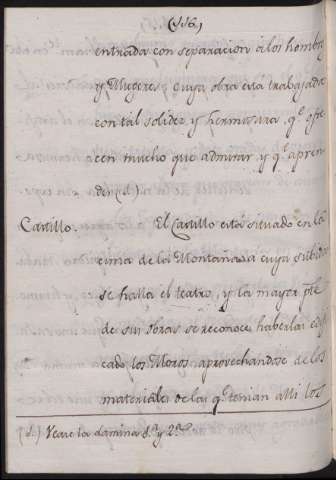 (556)
entrada con separacion á los hombres
y Mugeres, cuya obra está trabajada
con tál solidez, y hermosura, qe. ofre
cen mucho que admirar y qe. apren
der (1.)
Castillo. El Castillo está situado en la
cima de la Montaña á cuya subida
se halla el teatro, y la mayor pte.
de sus obras se reconoce haberlas edifi
cado los Moros aprovechandose de los
materiales de las qe. tenian alli los
(1.) Vease la lamina 1.ª y 2.ª